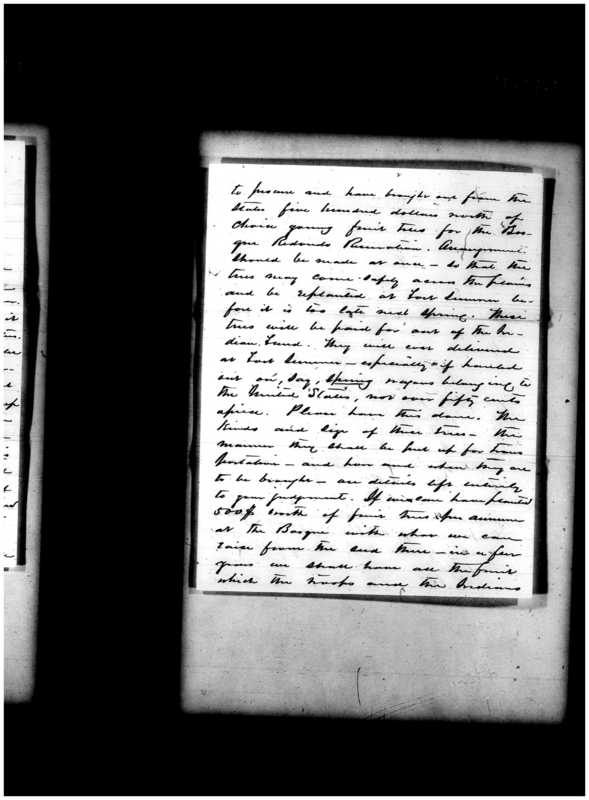 to procure and have brought out from the
States five hundred dollars worth of
choice young fruit trees for the Bos-
que Redondo Reservation. Arrangements
should be made at once - so that the
trees may come safely across the plains
and be replanted at Fort Sumner be-
fore it is too late next spring. These
trees will be paid for out of the In-
dian Fund. They will cost delivered
at Fort Sumner - especially if hauled
out on, say, spring wagons belonging to
the United States, not over fifty cents
apiece. Please have this done. The
kinds and size of these trees - the
manner they shall be put up for trans
portation - and how and when they are
to be brought - are details left entirely
to your judgement. If we can have planted
500$ worth of fruit trees per annum
at the Bosque with what we can
raise from the seed there - in a few
years we shall have all the fruit
which the troops and the Indians